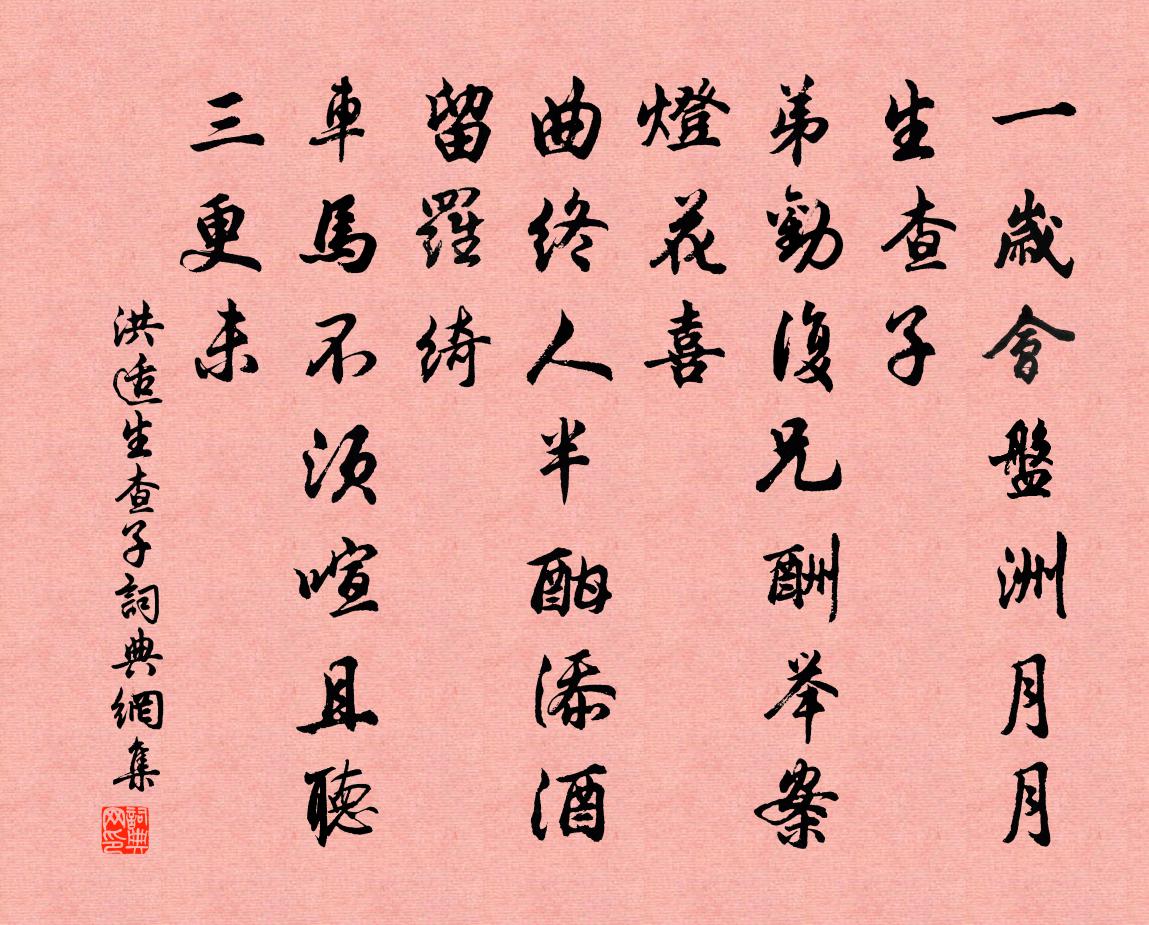 一歲會盤洲月月
生查子
弟勸復兄酬举案
燈花喜
曲終人半酣添酒
留羅綺
車馬不須喧且聽
三更未
洪适生查子詞典網集
詞典网印